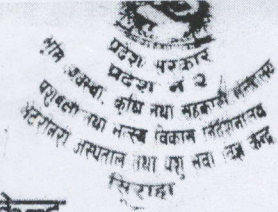 प्रदेश सरकार
प्रदेश नं २
भूमि व्यवस्था, कृषि तथा सहकारी मन्त्रालय
पशुपन्छी तथा मत्स्य विकास निर्देशनालय
भेटेरिनरी अस्पताल तथा पशु सेवा विज्ञ केन्द्र
सिराहा